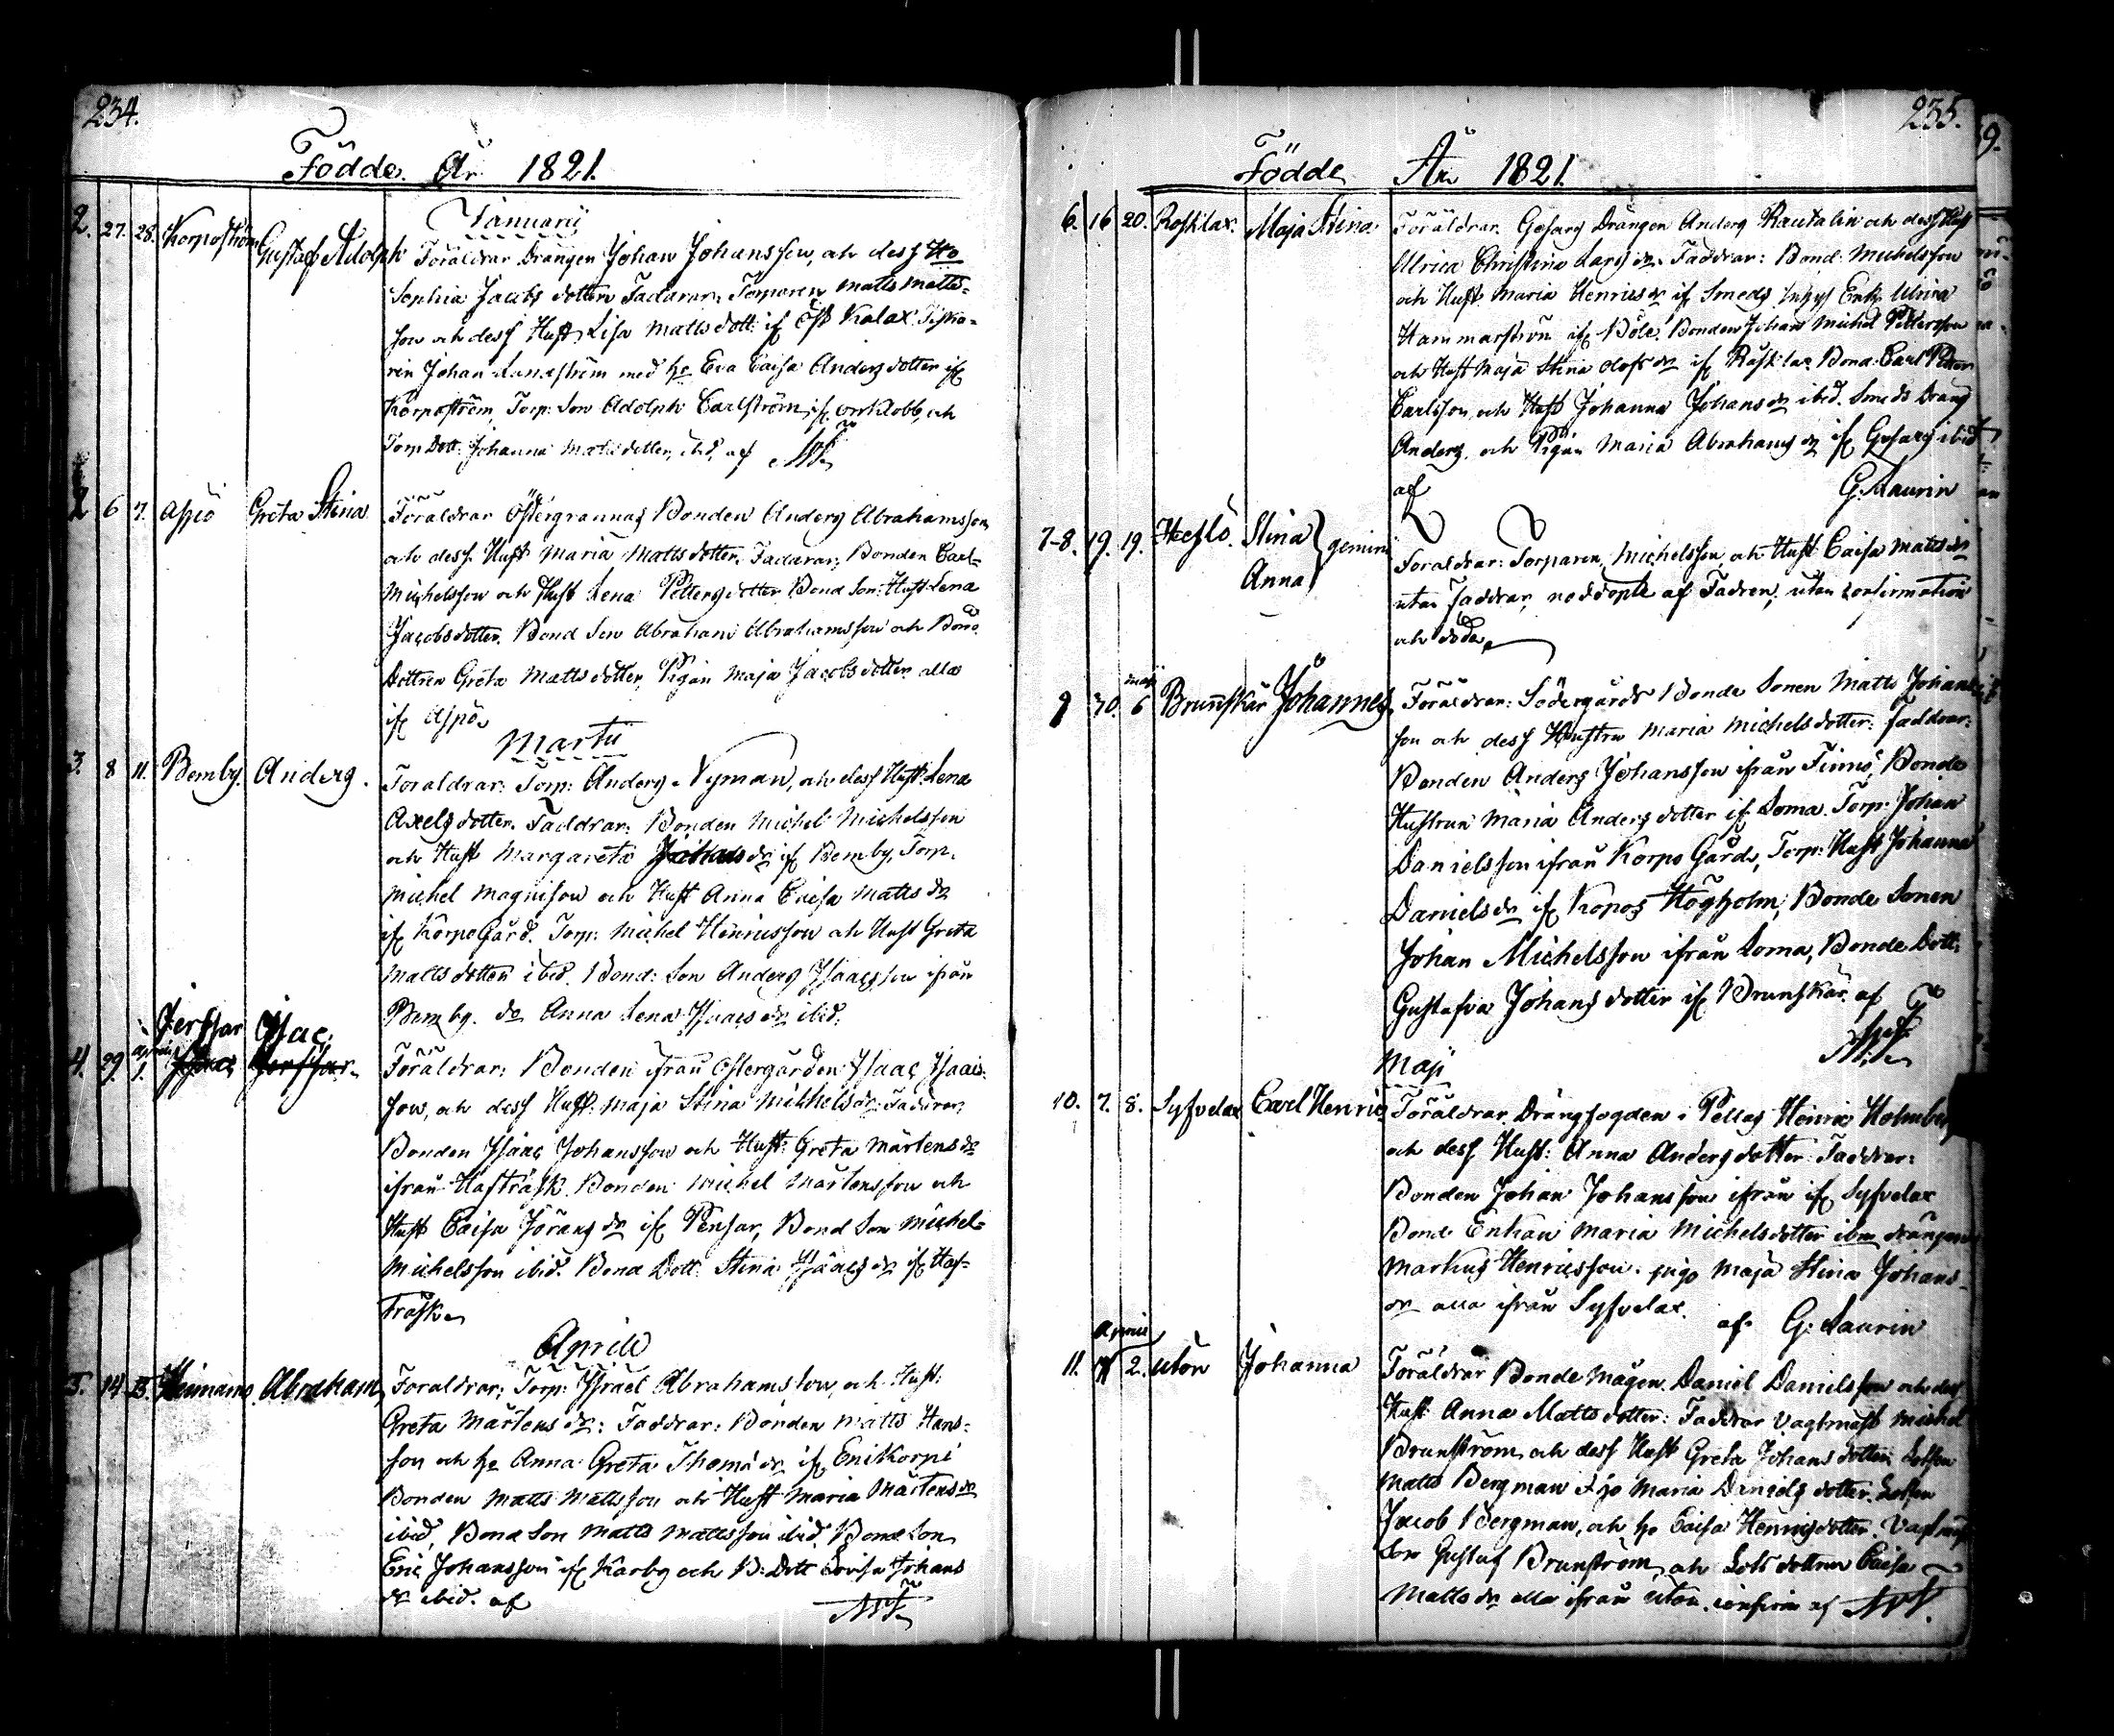 234.
Födde År 1821.
Januarii
2. 27. 28. Korpoström Gustaf Adolph Föräldrar Drängen Johan Johansson, och dess Ho
Sophia Jacobs dotter Faddrar: Torparen Matts Matts-
son och dess Hust. Lisa Mattsdott: if Öst Kalax.
rin Johan Lundström med ho Eva Caisa Anders dotter if
Korpoström, Torp: Son Adolph Carlström, if och
Torp Dott: Johanna Matts dotter, ibid, af
2 6 7. Aspö Greta Stina Föräldrar Östergrannas Bonden Anders Abrahamsson
och dess Hust Maria Mattsdotter. Faddrar, Bonden Carl
Michelsson och Hust Lena Petters dotter Bond Son: Hust Lena
Jacobsdotter. Bond Son Abraham Abrahamsson och Bond
Dottren Greta Mattsdotter, Pigan Maja Jacobs dotter alla
if Aspö
Martii
3. 8 11. Bemby. Anders. Föräldrar: Torp: Anders Nyman, och dess Hust. Lena
Axels dotter. Faddrar: Bonden Michel Michelsson
och Hust Margareta dr if Bemby, Torp.
Michel Magnisson och Hust Anna Caisa Matts dr
if Korpo Gård. Torp: Michel Henricsson och Hust Greta
Matts dotter ibid. Bond: Son Anders Isaacsson ifrån
Bemby. do Anna Lena Isaacs dr ibid.
Jerssar Isac.
4. 29. 1. Föräldrar: Bonden ifrån Östergården Isaac Isaacs-
son, och dess Hust: Maja Stina Michels dr: Faddrar,
Bonden Isaac Johansson och Hust: Greta Mårtens dr
ifrån Hafträsk. Bonden Michel Mårtensson och
Hust Caisa Jörans dr if Pensar, Bond Son Michel
Michelsson ibid. Bond Dott: Stina Isaacs dr if Haf-
träsk
Aprill
5. 14. 15. Abraham, Föräldrar; Torp: Israel Abrahamsson, och Hust:
Greta Mårtens dr: Faddrar: Bonden Matts Hans-
son och ho Anna Greta Thoms dr if
Bonden Matts Mattsson och Hust Maria Mårtens dr
ibid, Bond Son Matts Mattsson ibid. Bond Son
Eric Johansson if Karby och B: Dott Lovisa Johans
dr ibid. af
235.
Födde År 1821.
6. 16 20. Rosklax. Maja Stina Föräldrar. Gesarf Drängen Anders Rautalin och dess Hust
Ulrica Christina Lars dr. Faddrar: Bond: Michelsson
och Hust Maria Henrics dr if Smeds Enk: Ulrica
Hammarström if Böle. Bonden Johans Michel Pettersson
och Hust Maja Stina Olofs dr if Rosklax Bond: Carl Petter
Carlsson och Hust Johanna Johans dr ibid. Smeds Dräng
Anders, och Pigan Maria Abrahams dr if ibid
af G: Laurin
7-8. 19. 19. Stina Anna gemini Föräldrar: Torparen, Michelsson, och Hust Caisa Matts dr
utan Faddrar, nöddöpte af Fadren, utan confirmation
och döda
9 30. maji 6 Brunskär Johannes. Föräldrar: Södergårds Bonde Sonen Matts Johans-
son och dess Hustru Maria Michelsdotter: Faddrar:
Bonden Anders Johansson ifrån Finnö, Bonde
Hustrun Maria Anders dotter if Loma. Torp: Johan
Danielsson ifrån Korpo Gård, Torp: Hust Johanna
Daniels dr if Kopos Högholm, Bonde Sonen
Johan Michelsson ifrån Loma, Bonde Dott:
Gustafva Johans dotter if Brunskär af
Maji
10. 7. 8. Syfvelax Carl Henric. Föräldrar. Drängfogden i Pellas Henric Holmberg
och dess Hust: Anna Anders dotter Faddrar:
Bonden Johan Johansson ifrån if Syfvelax
Bond Enkan Maria Michelsdotter ibm drängen
Markus Henricsson. piga Maja Stina Johans-
dr alla ifrån Syfvelax. af G: Laurin
Aprill
11. 2. Utön Johanna Föräldrar Bonde Mågen. Daniel Danielsson och dess
Hust Anna Mattsdotter: Faddrar Vagtmast Michel
Brunström och dess Hust Greta Johans dotter, Lotsen
Matts Bergman ho Maria Daniels dotter. Lotsen
Jacob Bergman, och ho Caisa Henricsdotter.
Son Gustaf Brunström, och Lots dottren Caisa
Matts dr alla ifrån Utön. confirm af